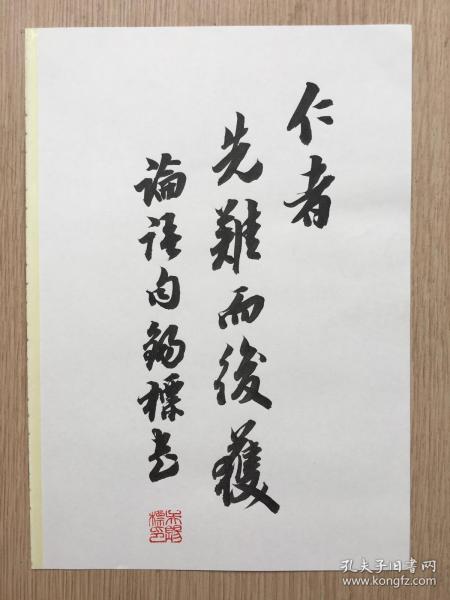 仁者
先難而後獲
論語句錫標書
孔夫子旧书网
www.kongfz.com